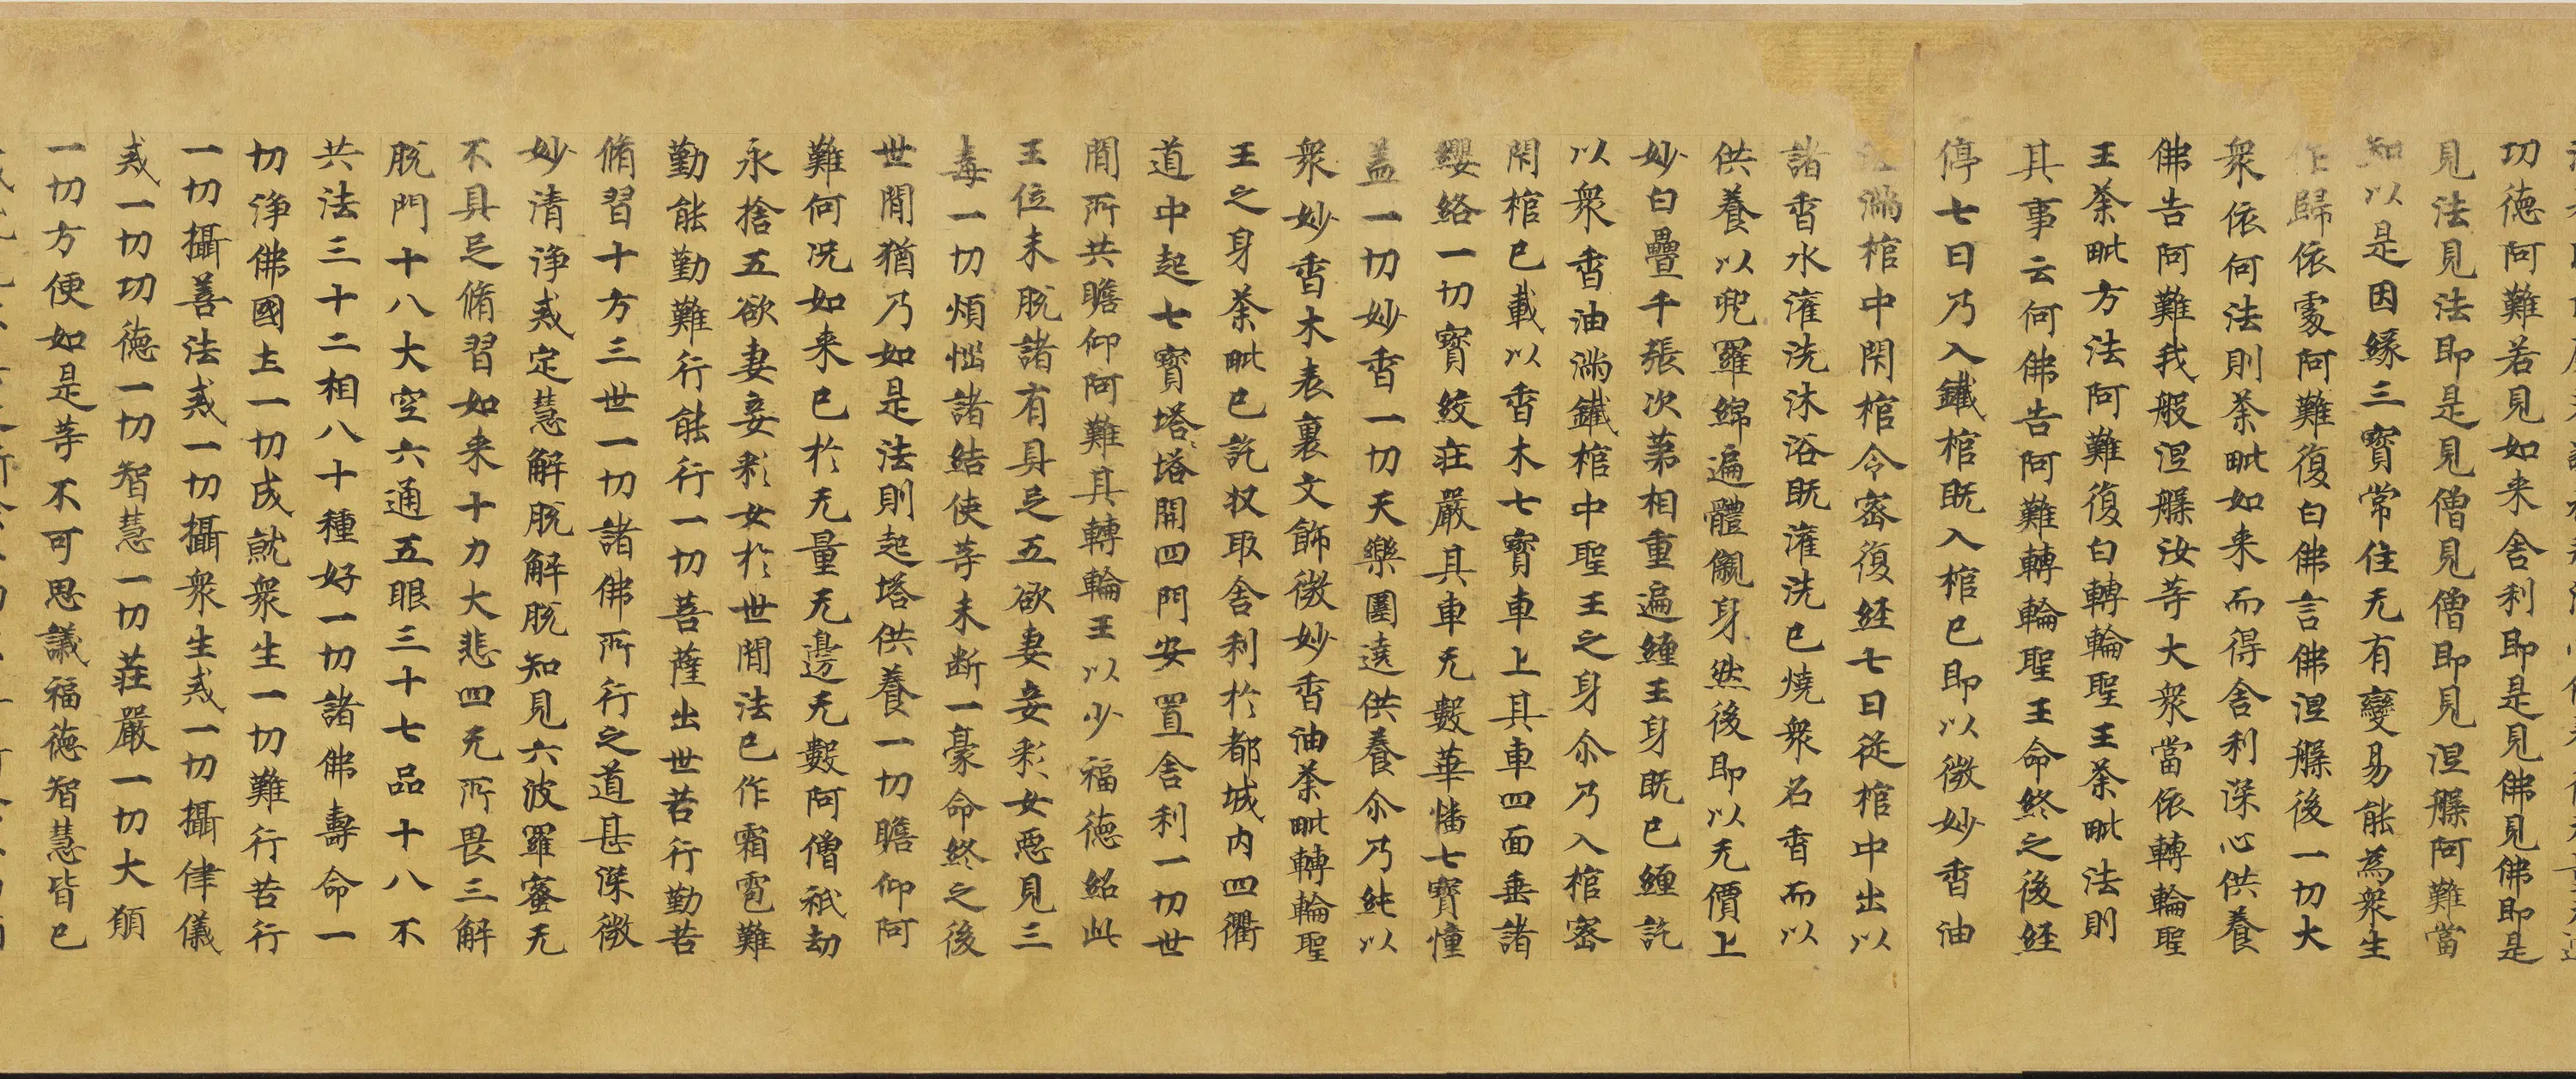 功德阿難若見如来舎利即是見佛見佛即是
見法見法即是見僧見僧即見涅槃阿難當
知以是因緣三寳常住无有變易能為衆生
作歸依處阿難復白佛言佛涅槃後一切大
衆依何法則荼毗如来而得舎利深心供養
佛告阿難我般涅槃汝等大衆當依轉輪聖
王荼毗方法阿難復白轉輪聖王荼毗法則
其事云何佛告阿難轉輪聖王命終之後経
停七日乃入鐵棺既入棺已即以微妙香油
滿棺中閇棺令密復経七日従棺中出以
諸香水灌洗沐浴既灌洗已燒衆名香而以
供養以兜羅綿遍體儭身然後即以无價上
妙白疊千張次苐相重遍纏王身既已纏訖
以衆香油滿鐵棺中聖王之身尒乃入棺密
閇棺已載以香木七寳車上其車四面垂諸
纓絡一切寳絞莊嚴其車无數華幡七寳幢
盖一切妙香一切天樂圍遶供養尒乃純以
衆妙香木表裏文飾微妙香油荼毗轉輪聖
王之身荼毗已訖収取舎利於都城内四衢
道中起七寳塔塔開四門安置舎利一切世
間所共瞻仰阿難其轉輪王以少福德紹此
王位未脫諸有具足五欲妻妾婇女惡見三
毒一切煩惱諸結使等未断一豪命終之後
世間猶乃如是法則起塔供養一切瞻仰阿
難何况如来已於无量无邊无數阿僧祇劫
永捨五欲妻妾婇女於世間法已作霜雹難
勤能勤難行能行一切菩薩出世苦行勤苦
脩習十方三世一切諸佛所行之道甚深微
妙清淨戒定慧解脫解脫知見六波羅蜜无
不具足脩習如来十力大悲四无所畏三解
脫門十八大空六通五眼三十七品十八不
共法三十二相八十種好一切諸佛壽命一
切淨佛國土一切成就衆生一切難行苦行
一切攝善法戒一切攝衆生戒一切攝律儀
戒一切功德一切智慧一切莊嚴一切大願
一切方便如是等不可思議福德智慧皆已